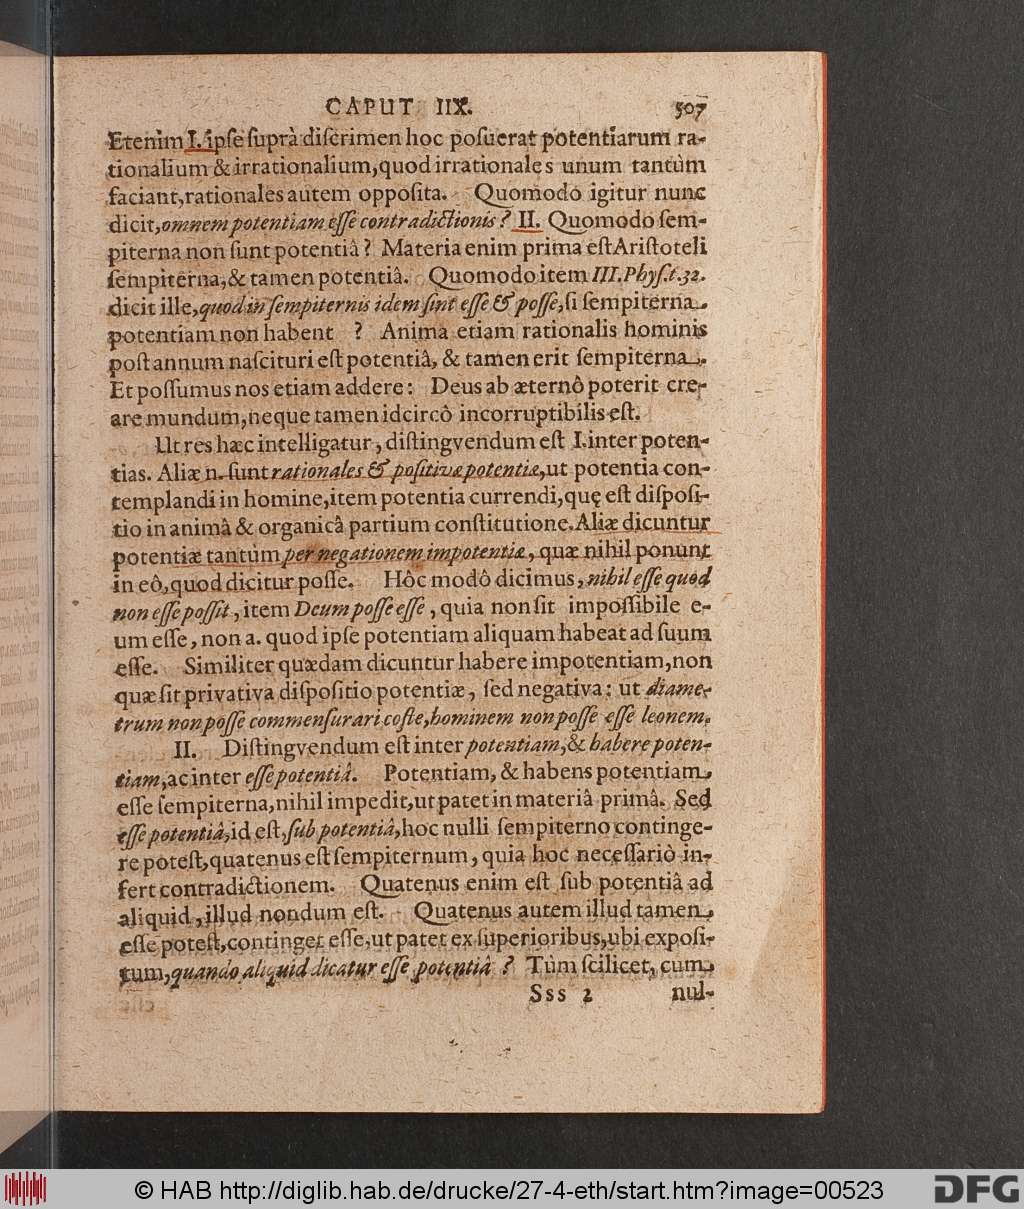 CAPUT IIX. 507
Etenim I. ipſe ſuprà diſcrimen hoc poſuerat potentiarum ra-
tionalium & irrationalium, quod irrationales unum tantùm
faciant, rationales autem oppoſita. Quomodo igitur nunc
dicit, omnem potentiam eſſe contradictionis? II. Quomodo ſem-
piterna non ſunt potentiâ? Materia enim prima eſt Ariſtoteli
ſempiterna, & tamen potentiâ. Quomodo item III. Phyſ. t. 32.
dicit ille, quod in ſempiternis idem ſint eſſe & poſſe, ſi ſempiterna
potentiam non habent ? Anima etiam rationalis hominis
poſt annum naſcituri eſt potentiâ, & tamen erit ſempiterna.
Et poſſumus nos etiam addere: Deus ab æternô poterit cre-
are mundum, neque tamen idcircô incorruptibilis eſt.
Ut res hæc intelligatur, diſtingvendum eſt I. inter poten-
tias. Aliæ n. ſunt rationales & poſitivæ potentiæ, ut potentia con-
templandi in homine, item potentia currendi, quę eſt diſpoſi-
tio in animâ & organicâ partium conſtitutione. Aliæ dicuntur
potentiæ tantùm per negationem impotentiæ, quæ nihil ponunt
in eô, quod dicitur poſſe. Hôc modô dicimus, nihil eſſe quod
non eſſe poſſit, item Deum poſſe eſſe, quia non ſit impoſſibile e-
um eſſe, non a. quod ipſe potentiam aliquam habeat ad ſuum
eſſe. Similiter quædam dicuntur habere impotentiam, non
quæ ſit privativa diſpoſitio potentiæ, ſed negativa: ut diame-
trum non poſſe commenſurari coſtæ, hominem non poſſe eſſe leonem.
II. Diſtingvendum eſt inter potentiam, & habere poten-
tiam, ac inter eſſe potentiâ. Potentiam, & habens potentiam
eſſe ſempiterna, nihil impedit, ut patet in materiâ primâ. Sed
eſſe potentiâ, id eſt, ſub potentiâ, hoc nulli ſempiterno continge-
re poteſt, quatenus eſt ſempiternum, quia hoc neceſſariò in-
fert contradictionem. Quatenus enim eſt ſub potentiâ ad
aliquid, illud nondum eſt. Quatenus autem illud tamen
eſſe poteſt, continget eſſe, ut patet ex ſuperioribus, ubi expoſi-
tum, quando aliquid dicatur eſſe potentiâ? Tùm ſcilicet, cum
Sss 2 nul-
© HAB http://diglib.hab.de/drucke/27-4-eth/start.htm?image=00523 DFG